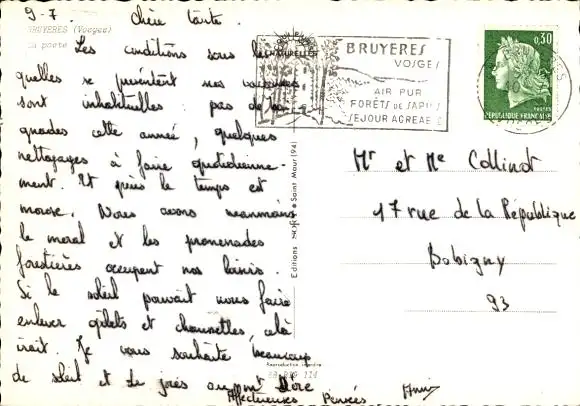 9-7.
Chère tante.
BRUYERES (Vosges)
La poste
Les conditions sous lesquelles
quelles se présentent nos vacances
sont inhabituelles : pas de
gnades cette année, quelques
nettoyages à faire quotidienne-
ment. Et puis le temps est
morose. Nous avons néanmoins
le moral et les promenades
forestières occupent nos loisirs.
Si le soleil pouvait nous faire
enlever gilets et chaussettes, celà
irait. Je vous souhaite beaucoup
de soleil et de près au mont Dore
Affectueuses Pensées Annie
BRUYERES
VOSGES
AIR PUR
FORÊTS DE SAPINS
SEJOUR AGREABLE
0,30
POSTES
REPUBLIQUE FRANÇAISE
Mr et Me Collinot
17 rue de la République
Bobigny
93
Editions
Saint Maur (94)
Reproduction interdite